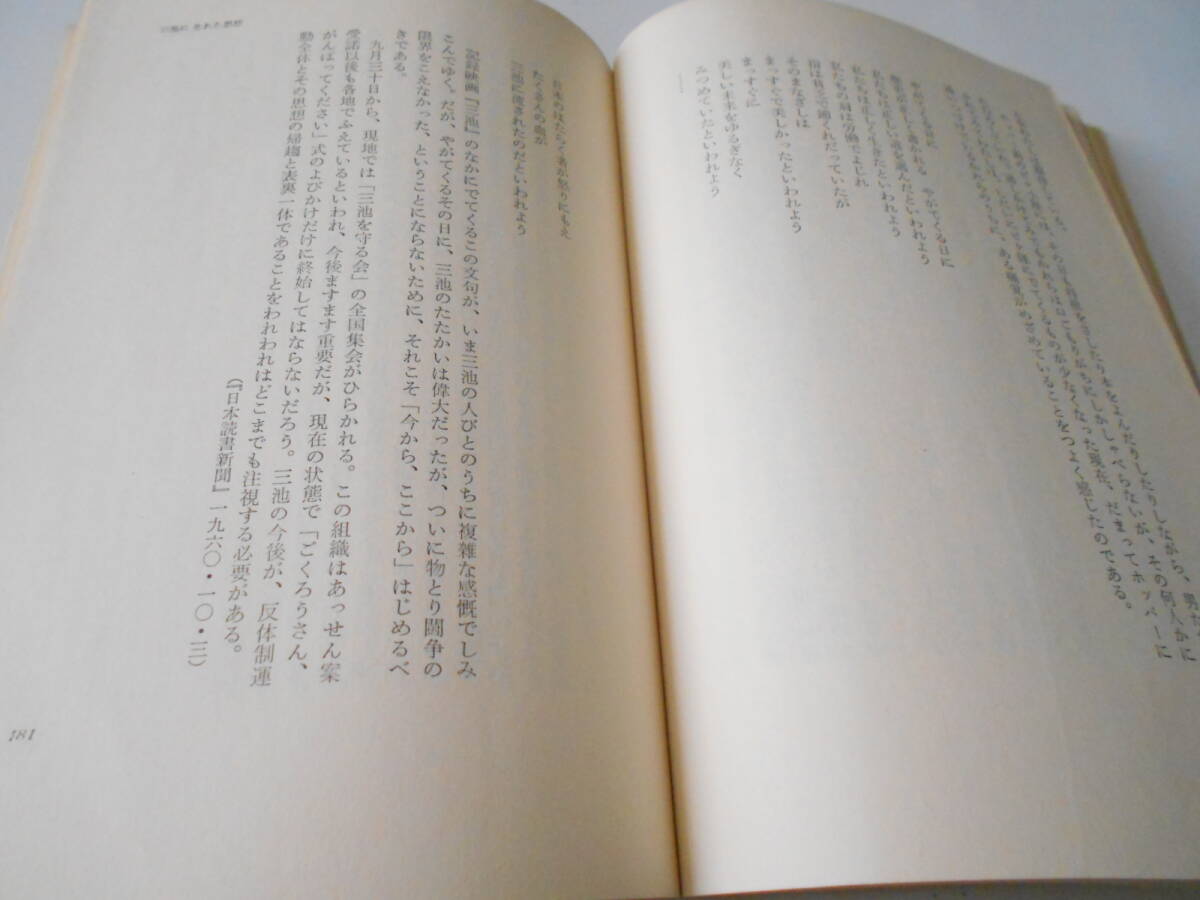 をしたり本をよんだりしたりしながら、男た
しゃべらないが、その何人かに
少なくなった現在、だまってホッパーに
ある極意がめざめていることをつよく感じたのである。
やがてくる日に
歴史が書かれる　やがてくる日に
私たちは正しい道を進んだといわれよう
私たちは正しく生きたといわれよう
私たちの肩は労働でよじれ
指は貧乏で節くれだっていたが
そのまなざしは
まっすぐで美しかったといわれよう
まっすぐに
美しい未来をゆるぎなく
みつめていたといわれよう
日本のはたらく者が怒りにもえ
たくさんの血が
三池に流されたのだといわれよう
記録映画『三池』のなかにでてくるこの文句が、いま三池の人びとのうちに複雑な感慨でしみ
こんでゆく。だが、やがてくるその日に、三池のたたかいは偉大だったが、ついに物とり闘争の
限界をこえなかった、ということにならないために、それこそ「今から、ここから」はじめるべ
きである。
九月三十日から、現地では「三池を守る会」の全国集会がひらかれる。この組織はあっせん案
受諾以後も各地でふえているといわれ、今後ますます重要だが、現在の状態で「ごくろうさん、
がんばってください」式のよびかけだけに終始してはならないだろう。三池の今後が、反体制運
動全体とその思想の帰趨と表裏一体であることをわれわれはどこまでも注視する必要がある。
（『日本読書新聞』一九六〇・一〇・三）
181